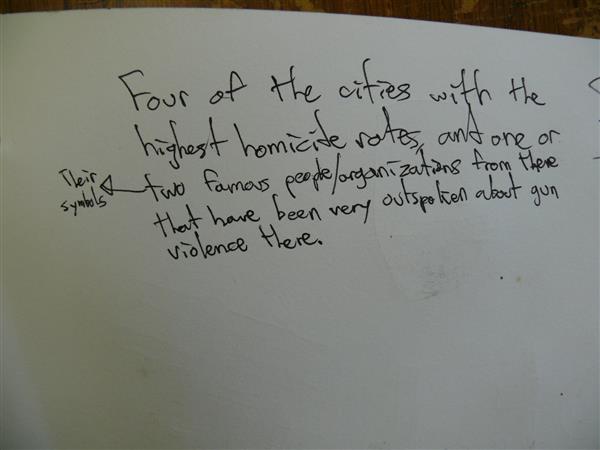 Four of the cities with the
highest homicide rates, and one or
two famous people/organizations from there
that have been very outspoken about gun
violence there.
Their
symbols